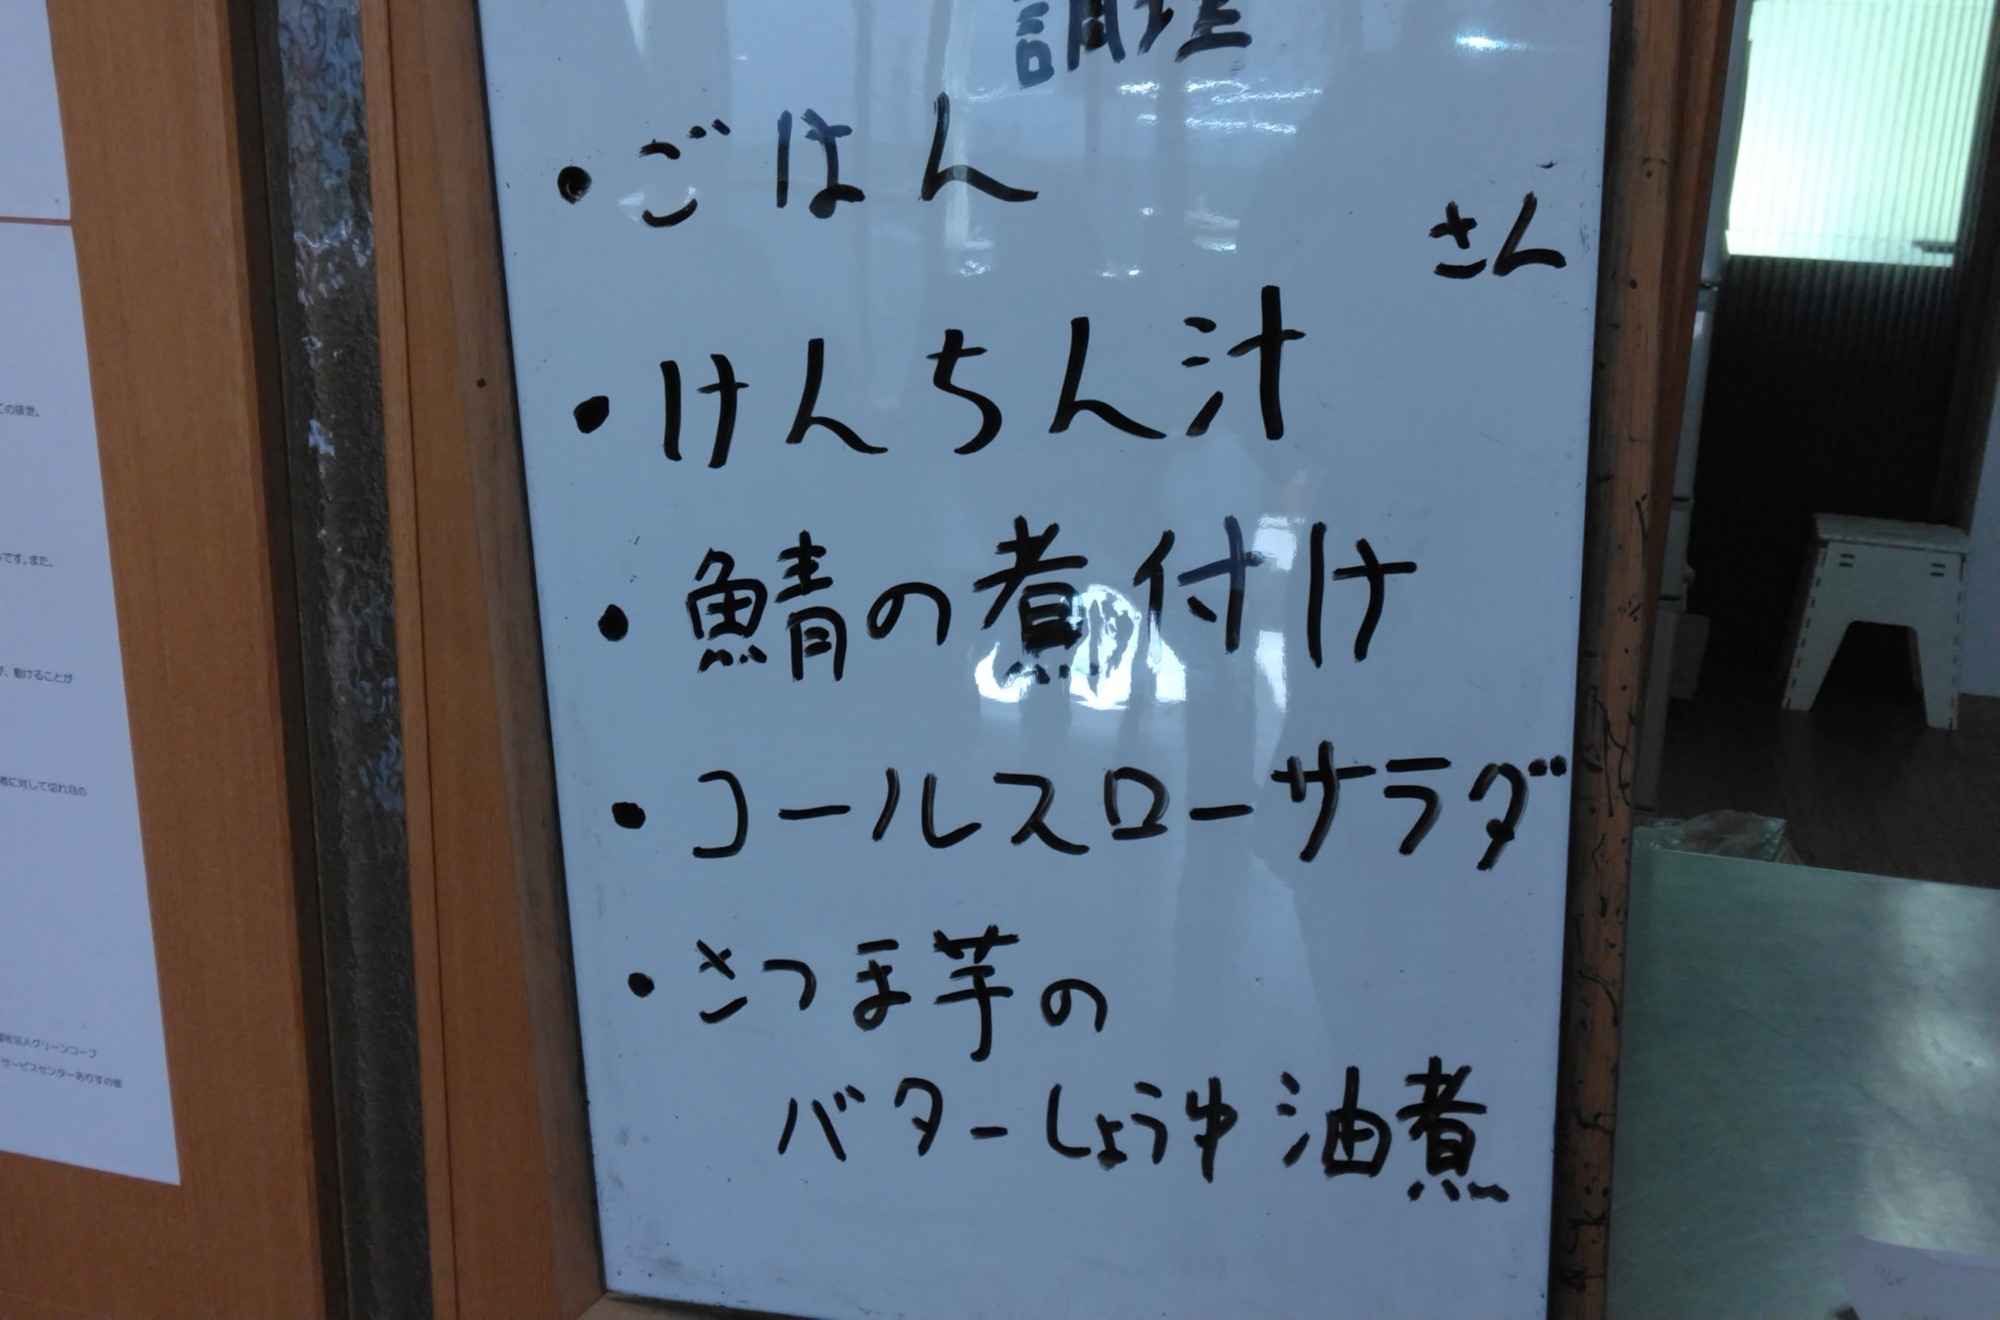 調理
・ごはん
さん
・けんちん汁
・鯖の煮付け
・コールスローサラダ
・さつま芋の
バターしょうゆ油煮
ての排泄。
です。また、
動けることが
者に対して切れ目の
福祉法人グリーンコープ
サービスセンターありすの家